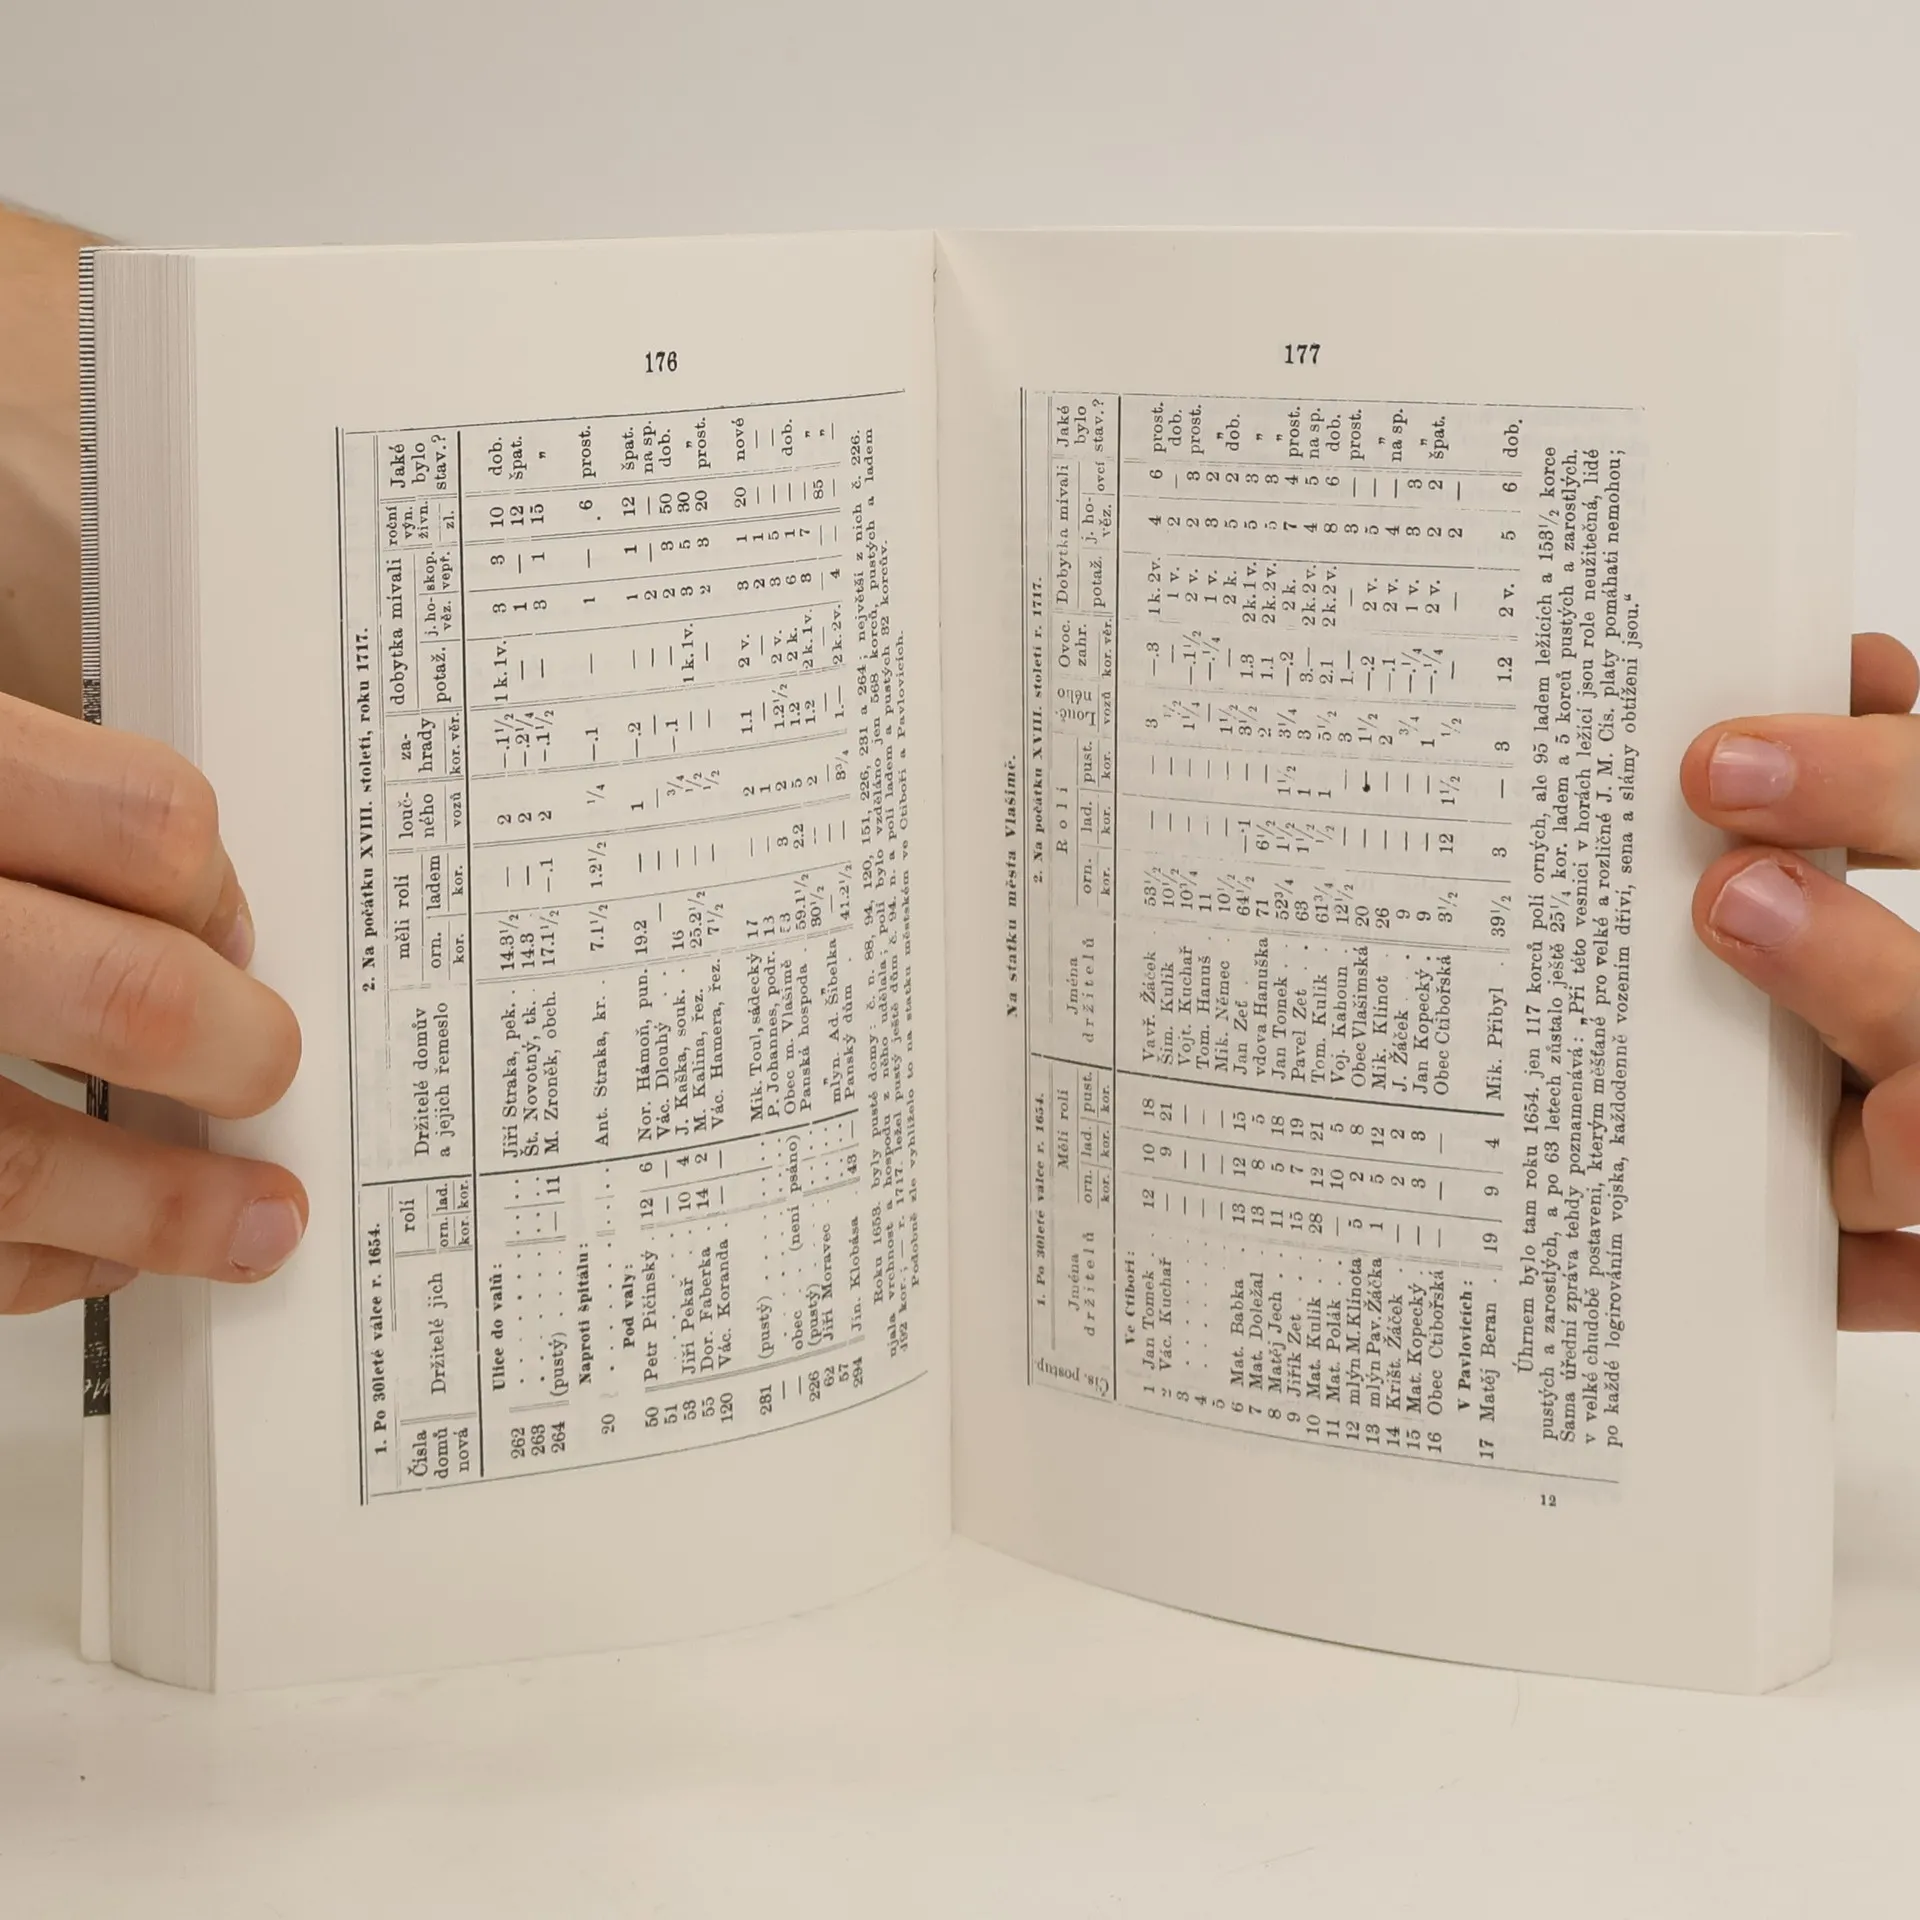 176
1. Po 30leté válce r. 1654. 2. Na počátku XVIII. století, roku 1717.
Čísla domů nová Držitelé jich rolí orn. kor. lad. kor. Držitelé domův a jejich řemeslo měli rolí orn. kor. ladem kor. louč-ného vozů za-hrady kor. věr. dobytka mívali potaž. j. ho-věz. skop. vepř. roční výn. živn. zl. Jaké bylo stav.?
Ulice do valů:
262 . . . . . . . . Jiří Straka, pek. . 14.3½ — 2 —.1½ 1k.1v. 3 3 10 dob.
263 . . . . . . . . Št. Novotný, tk. . 14.3 — 2 —.2¼ — 1 — 12 špat.
264 (pustý) . . . . — 11 M. Zroněk, obch. 17.1½ —.1 2 —.1½ — 3 1 15 „
Naproti špitálu:
20 . . . . . . . . Ant. Straka, kr. . 7.1½ 1.2½ ¼ —.1 — 1 — . 6 prost.
Pod valy:
50 Petr Pičinský . 12 6 Nor. Hámoň, pun. 19.2 — 1 —.2 — 1 1 12 špat.
51 . . . . . — — Vác. Dlouhý . . — — — — — 2 — — na sp.
53 Jiří Pekař . . 10 4 J. Kaška, souk. . 16 — ¾ —.1 — 2 3 50 dob.
55 Dor. Faberka . 14 2 M. Kalina, řez. 25.2½ — ½ — 1k.1v. 3 5 30 „
120 Vác. Koranda . — — Vác. Hamera, řez. 7½ — ½ — — 2 3 20 prost.
231 (pustý) . . . . . . . . Mik. Toul, sádecký 17 — 2 1.1 2 v. 3 1 20 nové
— . . . . . . . . P. Johannes, podr. 13 — 1 — — 2 1 — —
— obec . . . . (není psáno) Obec m. Vlašimě 53 3 2 1.2½ 2 v. 3 5 — —
226 (pustý) . . . . . . Panská hospoda . 59.1½ 2.2 5 1.2 2 k. 6 1 — dob.
62 Jiří Moravec . . . . „ 30½ — 2 1.2 2k.1v. 3 7 — „
57 . . . . mlyn. Ad. Šibelka — — — — — — — 85 „
294 Jin. Klobása . 43 — Panský dům . 41.2½ — 8¾ 1.— 2k.2v. 4 — — —
Roku 1653. byly pusté domy: č. n. 88, 94, 120, 151, 226, 231 a 264; největší z nich č. 226.
ujala vrchnost a hospodu z něho udělala; polí bylo vzděláno jen 568 korců, pustých a ladem
492 kor.; — r. 1717. ležel pustý ještě dům č. 94. n. a polí ladem a pustých 32 korcův.
Podobně zle vyhlíželo to na statku městském ve Ctiboři a Pavlovicích.
177
Na statku města Vlašimě.
1. Po 30leté válce r. 1654. 2. Na počátku XVIII. století r. 1717.
Čís. postup. Jména držitelů Měli rolí orn. kor. lad. kor. pust. kor. Jména držitelů Rolí orn. kor. lad. kor. pust. kor. vozů Ovoc. zahr. kor. věr. Dobytka mívali potaž. j. ho-věz. ovcí Jaké bylo stav.?
Ve Ctiboři:
1 Jan Tomek . . 12 10 18 Vavř. Žáček . 53½ — — 3 —.3 1k.2v. 4 6 prost.
2 Vác. Kuchař . — 9 21 Šim. Kulik . 10½ — — ½ — 1 v. 2 — dob.
3 . . . . . — — — Vojt. Kuchař . 10¼ — — 1¼ —.1½ 2 v. 2 3 prost.
4 . . . . . — — — Tom. Hanuš . 11 — — — —.¼ 1 v. 3 2 „
5 . . . . . — — — Mik. Němec . 10½ — — 1½ — 2 k. 5 2 dob.
6 Mat. Babka . 13 12 15 Jan Zeť . . 64½ —.1 — 3½ 1.3 2k.1v. 5 3 „
7 Mat. Doležal . 13 8 5 vdova Hanuška 71 6½ — 2 1.1 2k.2v. 5 3 „
8 Matěj Jech . . 11 5 18 Jan Tomek . . 52¾ 1½ 1½ 3¼ —.2 2 k. 7 4 prost.
9 Jiřík Zet . . 15 7 19 Pavel Zet . . 63 1½ 1 3 3.— 2k.2v. 4 5 na sp.
10 Mat. Kulik . . 28 12 21 Tom. Kulik . 61¾ ½ 1 5½ 2.1 2k.2v. 8 6 dob.
11 Mat. Polák . . — 10 5 Voj. Kahoun . 12½ — — 3 1.— — 3 — prost.
12 mlýn M. Klinota 5 2 8 Obec Vlašimská 20 — — 1½ —.2 2 v. 5 — „
13 mlýn Pav. Žáčka 1 5 12 Mik. Klinot . 26 — — 2 —.1 2 v. 4 — na sp.
14 Kršt. Žáček . — 2 2 J. Žáček . . 9 — — ¾ —.¼ 1 v. 3 3 „
15 Mat. Kopecký . — 3 3 Jan Kopecký . 9 — — 1 —.¼ 2 v. 2 2 špat.
16 Obec Ctibořská — — — Obec Ctibořská 3½ 12 1½ ½ — — 2 —
V Pavlovicích:
17 Matěj Beran . 19 9 4 Mik. Přibyl . 39½ 3 — 3 1.2 2 v. 5 6 dob.
Úhrnem bylo tam roku 1654. jen 117 korců polí orných, ale 95 ladem ležících a 153½ korce
pustých a zarostlých, a po 63 letech zůstalo ještě 25¼ kor. ladem a 5 korců pustých a zarostlých.
Sama úřední zpráva tehdy poznamenává: „Při této vesnici v horách ležící jsou role neužitečná, lidé
v velké chudobě postavení, kterým měšťané pro velké a rozličné J. M. Cis. platy pomáhati nemohou;
po každé logirováním vojska, každodenně vozením dříví, sena a slámy obtíženi jsou.“
12